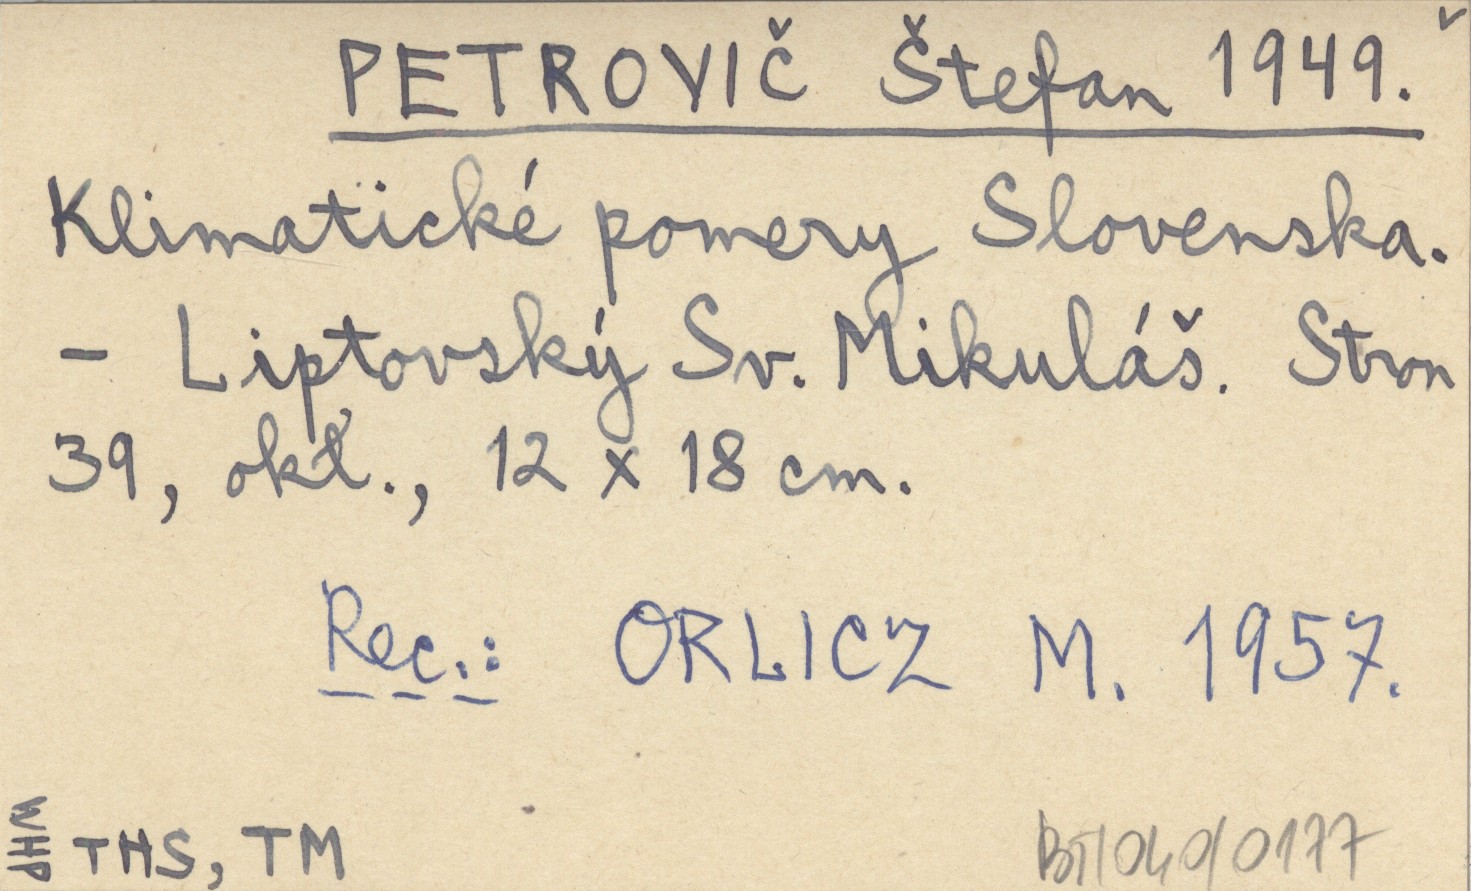 PETROVIČ Štefan 1949.
Klimatické pomery Slovenska.
- Liptovský Sv. Mikuláš. Stron
39, okł., 12 x 18 cm.
Rec.: ORLICZ M. 1957.
WHP THS, TM
BT/040/0177